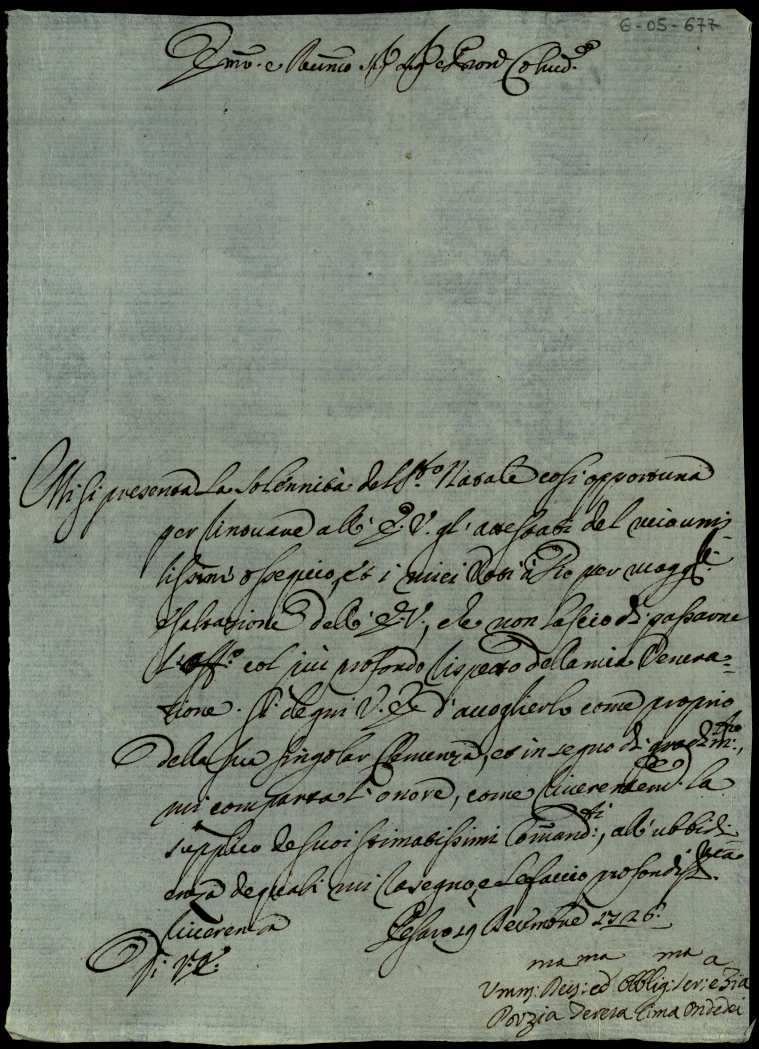 6-05-677
Emo. e Revmo. Sig. Sig. e Pron. Colmo.
Mi si presenta la solennità del Sto. Natale così opportuna
per rinovare all'E. V. gl'attestati del mio umi-
lissimo ossequio, et i miei voti à Dio per magg.re
esaltazione dell'E. V., che non lascio di passarne
l'off.o col più profondo rispetto della mia Venera-
zione. Si degni V. E. d'accoglierlo come proprio
della sua singolar Clemenza, et in segno di gradim.to,
mi comparta l'onore, come riverentem. la
supplico de suoi stimatissimi Comand.ti, all'ubbidi
enza de quali mi rasegno, e le faccio profondiss.ma
riverenza
Pesaro 19 Decembre 1726.
Di V. E.
Umm: Dev: ed Obblig: ser: e Zia
Porzia Teresa Cima Ondedei